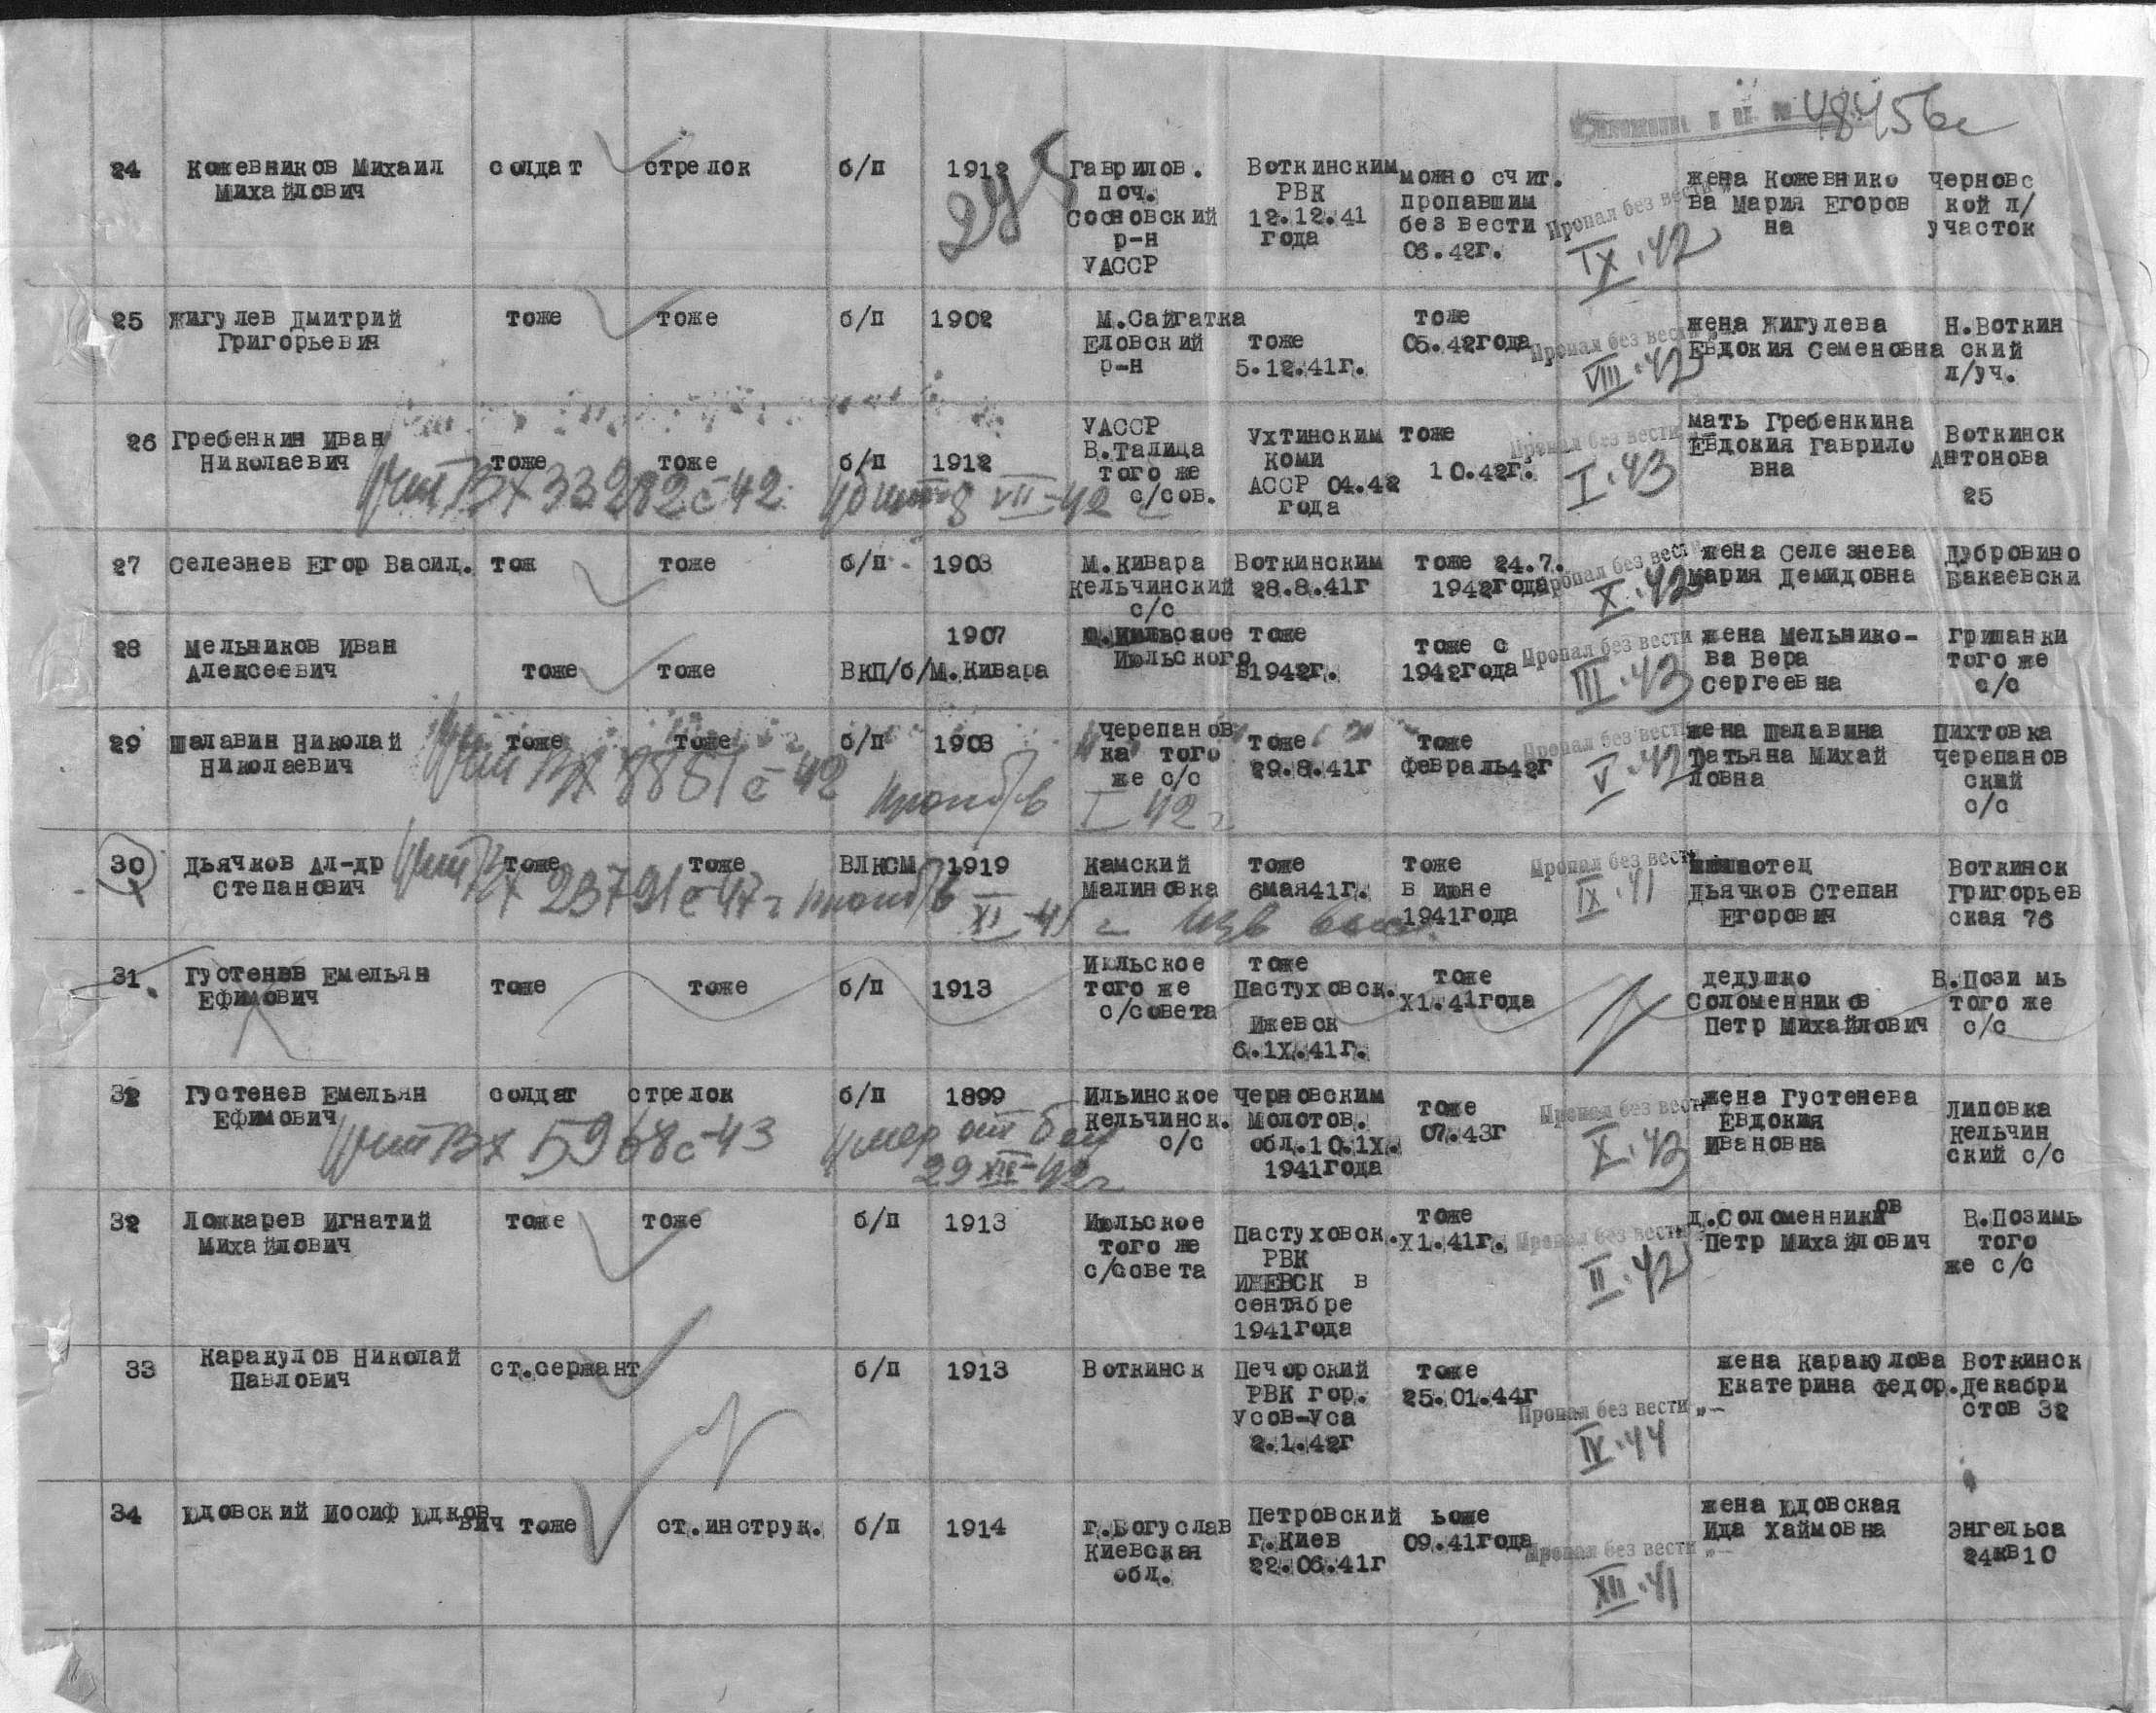 48456с
24 Кожевников Михаил солдат стрелок б/п 1912 Гаврилов. Воткинским можно счит. жена Кожевнико Черновс
Михайлович поч. РВК пропавшим Пропал без вести ва Мария Егоров кой л/
Сосновский 12.12.41 без вести на участок
р-н года 06.42г. IX.42
УАССР
275
25 Жигулев Дмитрий тоже тоже б/п 1902 М.Сайгатка тоже жена Жигулева Н.Воткин
Григорьевич Еловский тоже 05.42года Пропал без вести Евдокия Семеновна ский
р-н 5.12.41г. VIII.42 л/уч.
26 Гребенкин Иван УАССР Ухтинским тоже Пропал без вести мать Гребенкина Воткинск
Николаевич тоже тоже б/п 1912 В.Талица Коми 10.42г. I.43 Евдокия Гаврило Антонова
того же АССР 04.42 вна 25
с/сов. года
Учт Вх 33282с-42 Убит 8 VII-42
27 Селезнев Егор Васил. тож тоже б/п 1903 М.Кивара Воткинским тоже 24.7. Пропал без вести жена Селезнева Дубровино
Кельчинский 28.8.41г 1942года X.42 Мария Демидовна Бакаевски
с/с
28 Мельников Иван 1907 тоже тоже с Пропал без вести жена Мельнико- гришанки
Алексеевич тоже тоже ВКП/б/М.Кивара Июльского в1942г. 1942года III.43 ва Вера того же
Сергеевна с/с
29 Шалавин Николай тоже тоже б/п 1903 Черепанов тоже тоже Пропал без вести жена Шалавина Пихтовка
Николаевич ка того 29.8.41г февраль42г V.42 Татьяна Михай Черепанов
же с/с ловна ский
с/с
Учт Вх 8881с-42 проп б/в I 42г
30 Дьячков Ал-др тоже тоже ВЛКСМ 1919 Камский тоже тоже Пропал без вести отец Воткинск
Степанович Малиновка 6мая41г. в июне IX.41 Дьячков Степан Григорьев
1941года Егорович ская 76
Учт Вх 23791с-47г проп б/в XI-41г Изв
31 Густенев Емельян тоже тоже б/п 1913 Июльское тоже тоже дедушко В.Пози мь
Ефимович того же Пастуховск. Х1.41года Соломенников того же
с/совета Ижевск Петр Михайлович с/с
6.1Х.41г.
32 Густенев Емельян солдат стрелок б/п 1899 Ильинское Черновским тоже Пропал без вести жена Густенева Липовка
Ефимович Кельчинск. Молотов. 07.43г X.43 Евдокия Кельчин
с/с обл.10.1Х. Ивановна ский с/с
1941года
Учт Вх 5968с-43 Умер от бол
29 XII-42г
32 Ложкарев Игнатий тоже тоже б/п 1913 Июльское Пастуховск. тоже Пропал без вести д.Соломенников В.Позимь
Михайлович того же РВК Х1.41г. II.42 Петр Михайлович того
с/совета ИЖЕВСК в же с/с
сентябре
1941года
33 Каракулов Николай ст.сержант б/п 1913 Воткинск Печорский тоже жена Каракулова Воткинск
Павлович РВК гор. 25.01.44г Пропал без вести „— Екатерина Федор. Декабри
Усов-Уса IV.44 стов 32
2.1.42г
34 Юдовский Иосиф Юдков тоже ст.инструк. б/п 1914 г.Богуслав Петровский ьоже жена Юдовская Энгельса
вич Киевская г.Киев 09.41года Пропал без вести „— Ида Хаймовна 24кв10
обл. 22.06.41г XII.41